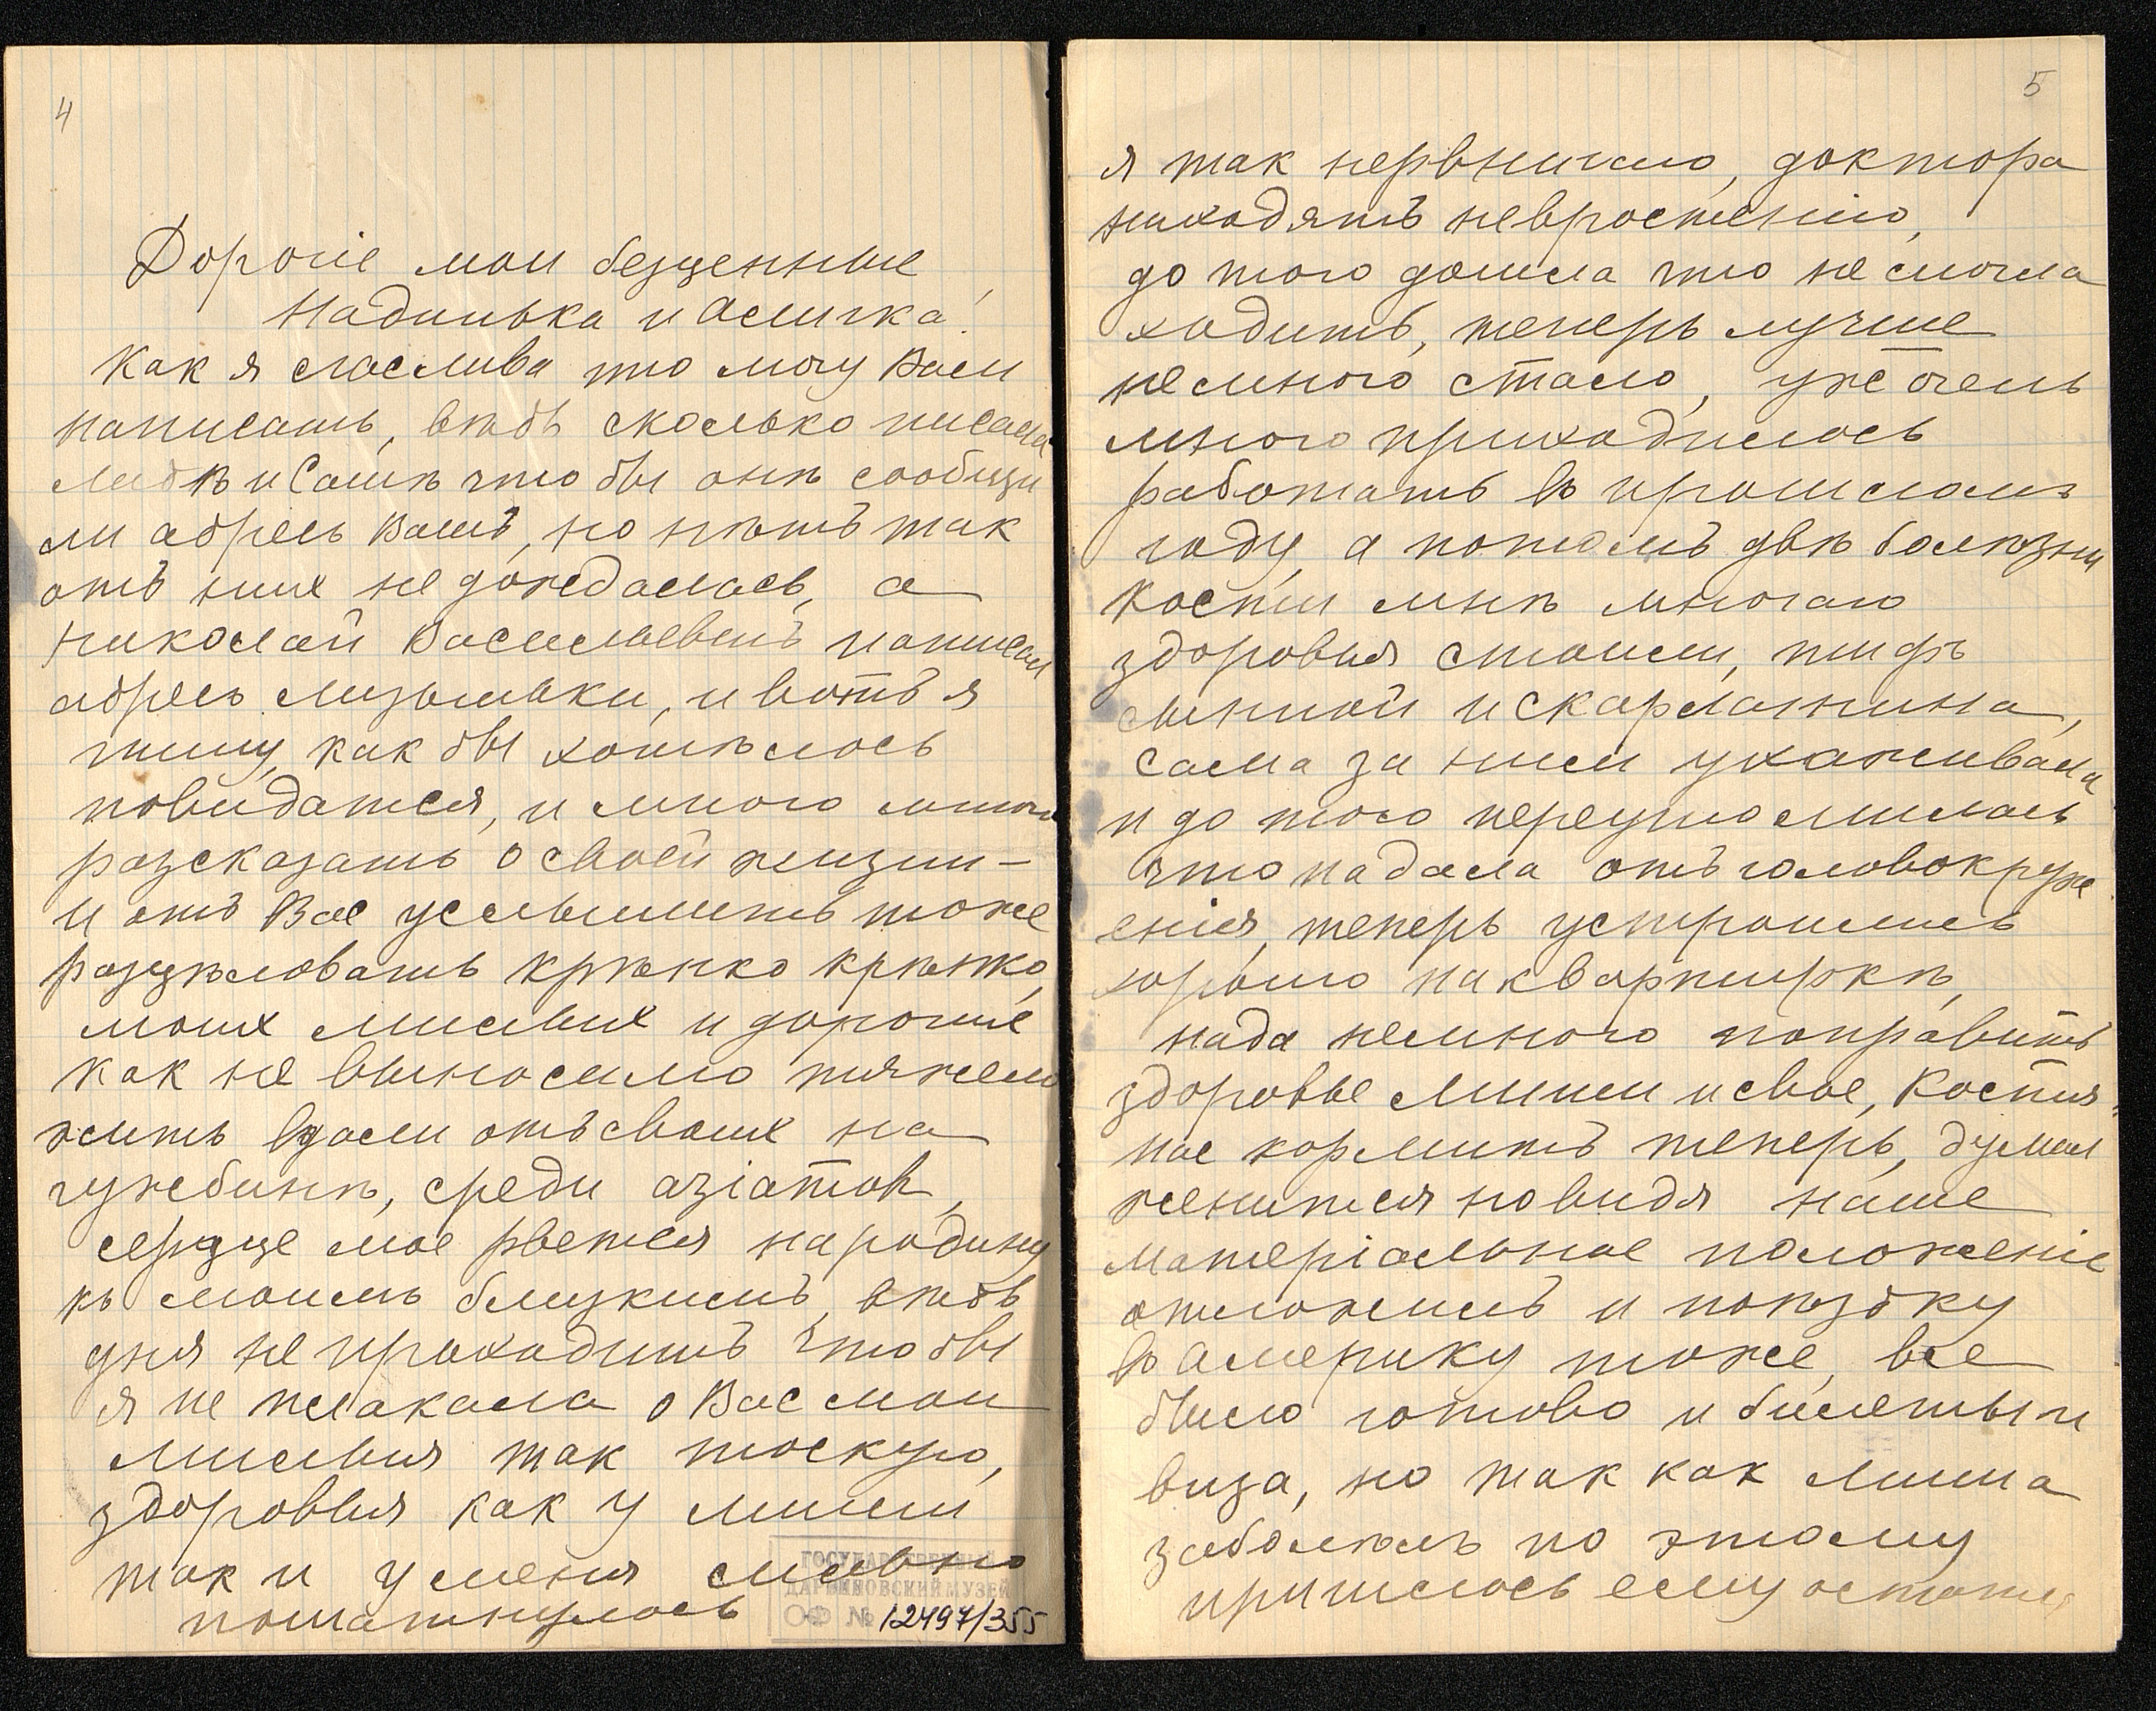 4
Дорогiе мои безценные,
Надинька и Асичка!
Как я счаслива что могу Вам
написать, вѣдь сколько писала
Лидѣ и Сашѣ что бы онѣ сообщи
ли адресъ Вашъ, но нѣтъ так
отъ них не дождалась, а
Николай Васильевичъ написал
адресъ Музыльки, и вотъ я
пишу, как бы хотѣлось
повидатся, и много много
разсказать о своей жизни —
и отъ Вас услышить тоже
разцѣловать крѣпко крѣпко,
моих милых и дорогие
как не выносимо тяжело
жить вдали отъ своих на
чужбинѣ, среди азiатов,
сердце мое рвется на родину
къ моимъ близкимъ, вѣдь
дня не проходитъ что бы
я не плакала о Вас мои
милыя так тоскую,
здоровья как у Миши
так и у меня сильно
пошатнулось
ГОСУДАРСТВЕННЫЙ
ДАРВИНОВСКИЙ МУЗЕЙ
ОФ № 12497/355
5
я так нервничаю, доктора
находятъ невростенiю,
до того дошла что не могла
ходить, теперь лучше
немного стало, уж очень
много приходилось
работать въ прошломъ
году, а потомъ двѣ болѣзни
Кости мнѣ многаго
здоровия стоили, тифъ
сыпной и скарлатина,
сама за ним ухаживала
и до того переутомилась
что падала отъ головокруж
енiя, теперь устроились
хорошо на квартиркѣ,
надо немного поправить
здоровье Миши и свое, Костя
нас кормитъ теперь, думал
женится но видя наше
матерiальное положенiе
отложилъ и поѣздку
въ Америку тоже, все
было готово и билеты и
виза, но так как Миша
заболѣлъ по этому
пришлось ему остатся